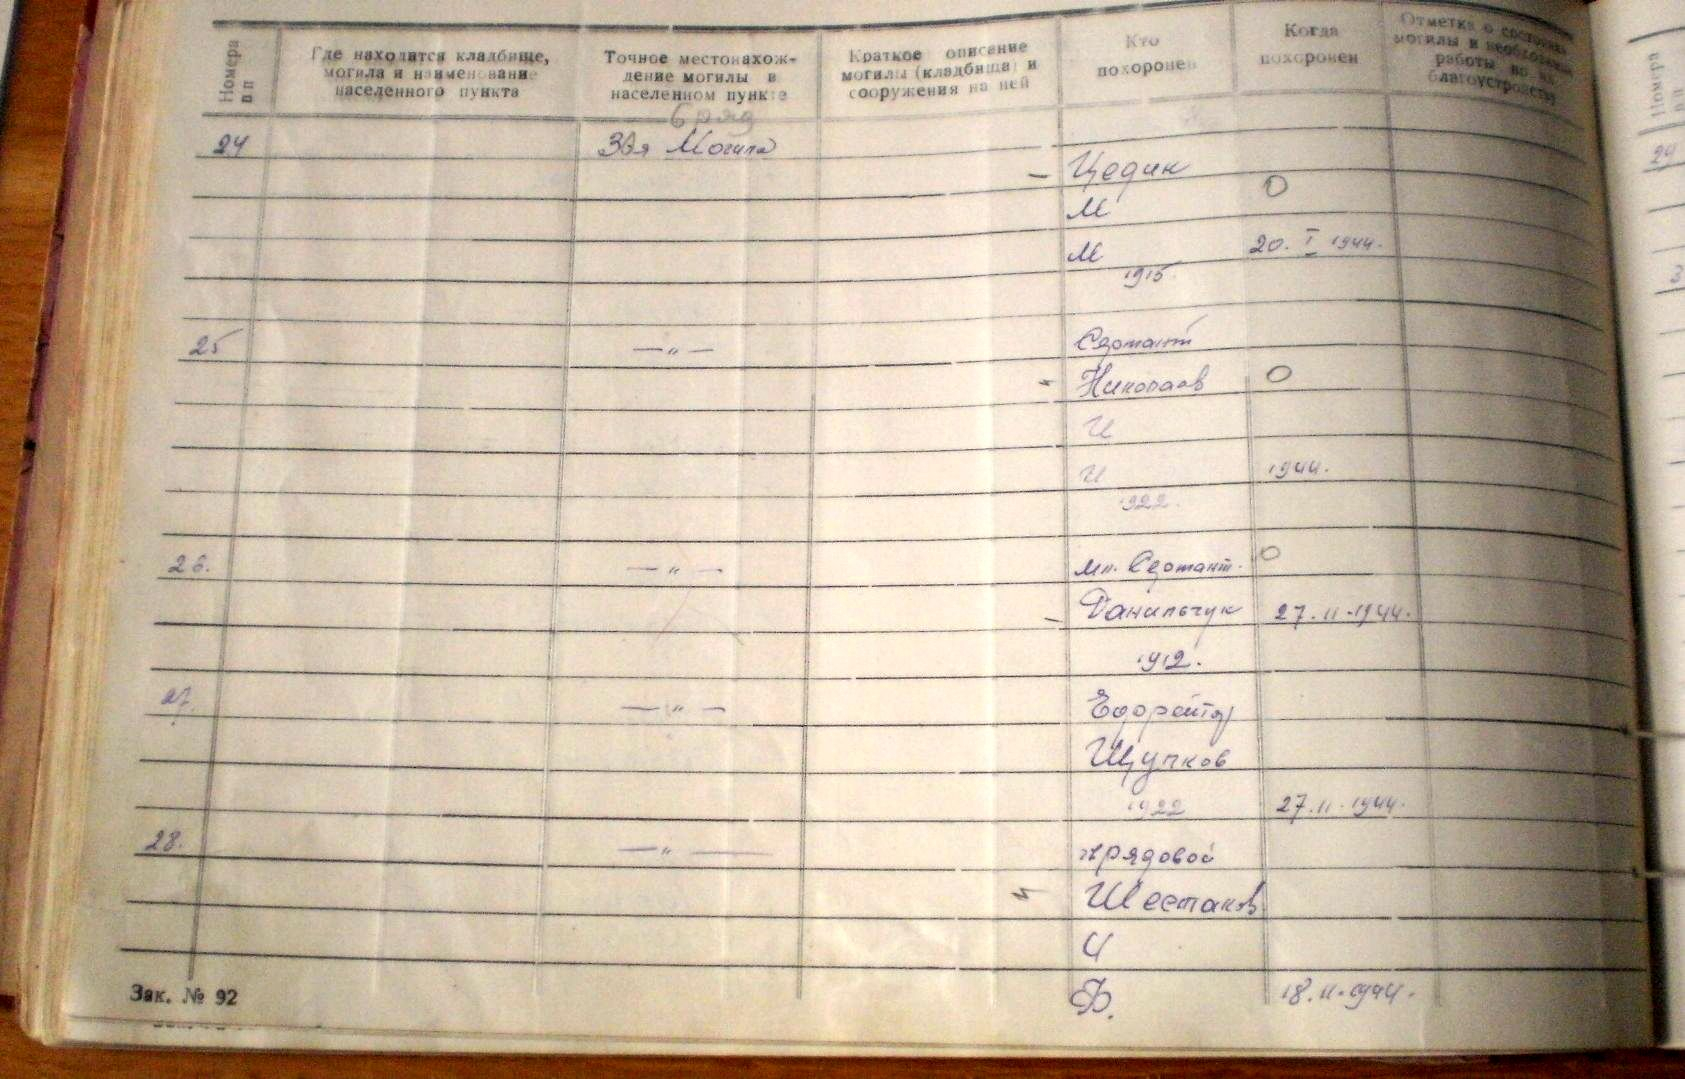 Номера п п
Где находится кладбище, могила и наименование населенного пункта
Точное местонахож-
дение могилы в
населенном пункте
Краткое описание
могилы (кладбища) и
сооружения на ней
Кто
похоронен
Когда
похоронен
Отметка о состоянии
могилы и необходимые
работы по их
благоустройству
6 ряд
24 3я Могила
Цедик
М
М 20. I 1944.
1915
25 —„— Сержант
Николаев
И
И 1944.
1922.
26. —„— мл. Сержант.
Данильчук 27. II-1944.
1912.
27. —„— Ефрейтор
Щупков
1922 27. II-1944.
28. —„— рядовой
Шестаков
И
Ф. 18. II-1944.
Зак. № 92
Номера
п п
24